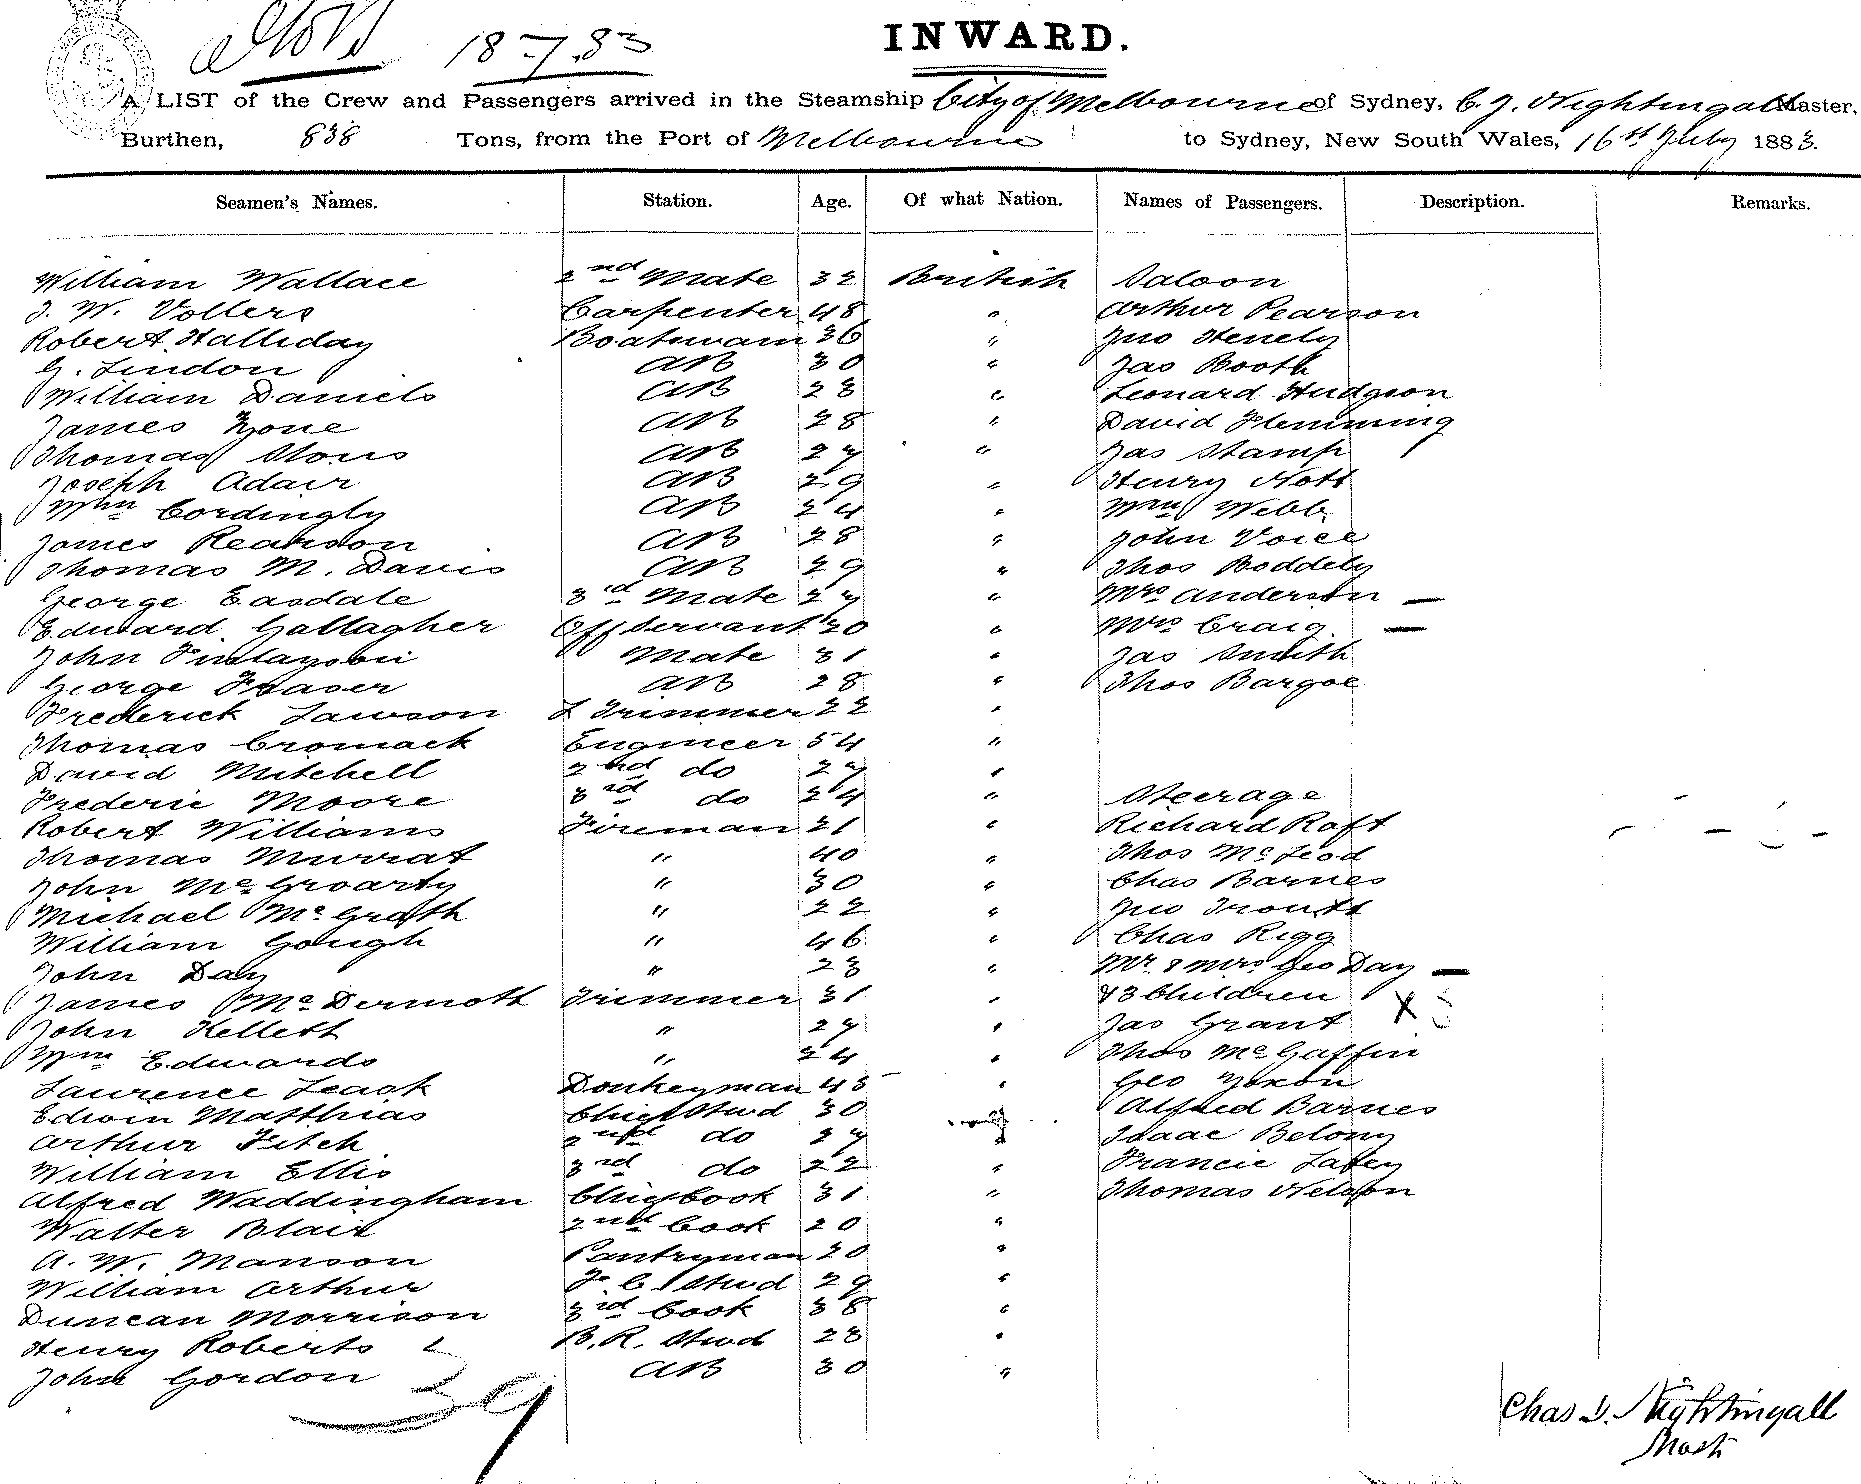 18-7.83
INWARD.
A LIST of the Crew and Passengers arrived in the Steamship City of Melbourne of Sydney, C. J. Nightingall Master,
Burthen, 838 Tons, from the Port of Melbourne to Sydney, New South Wales, 16th July 1883.
Seamen's Names. Station. Age. Of what Nation. Names of Passengers. Description. Remarks.
William Wallace 2nd Mate 32 British Saloon
J. W. Vollers Carpenter 48 " Arthur Pearson
Robert Halliday Boatswain 36 " Jno Henely
G. Lindon AB 30 " Jas Booth
William Daniels AB 28 " Leonard Hudgson
James Hone AB 28 " David Flemming
Thomas AB 27 " Jas Stamp
Joseph Adair AB 29 " Henry Nott
Wm Cordingly AB 24 " Wm Webb
James Reardon AB 28 " John Voice
Thomas M. Davis AB 29 " Thos Boddely
George Easdale 3rd Mate 27 " Mrs Anderson —
Edward Gallagher Off Servant 20 " Mrs Craig —
John Finlayson Mate 31 " Jas Smith
George Fraser AB 28 " Thos Bargoe
Frederick Lawson L Trimmer 22 "
Thomas Cromack Engineer 54 "
David Mitchell 2nd do 27 "
Frederic Moore 3rd do 24 " Steerage
Robert Williams Fireman 21 " Richard Raft
Thomas Murrat " 40 " Thos McLeod
John McGroarty " 30 " Chas Barnes
Michael McGrath " 22 " Jno Troutt
William Gough " 46 " Chas Rigg
John Day " 23 " Mr & Mrs Geo Day —
James McDermott Trimmer 31 " & 3 Children
John Kellett " 27 " Jas Grant X
Wm Edwards " 24 " Thos McGaffin
Laurence Leack Donkeyman 45 " Geo Yoxon
Edwin Matthias Chief Stwd 30 Alfred Barnes
Arthur Fitch 2nd do 27 Isaac Belony
William Ellis 3rd do 22 " Francie Lafey
Alfred Waddingham Chief Cook 31 " Thomas Nelson
Walter Blair 2nd Cook 20 "
A. W. Manson Pantryman 20 "
William Arthur F. C. Stwd 29 "
Duncan Morrison 3rd Cook 38 "
Henry Roberts B. R. Stwd 28 "
John Gordon AB 30 "
39
Chas J. Nightingall
Mast